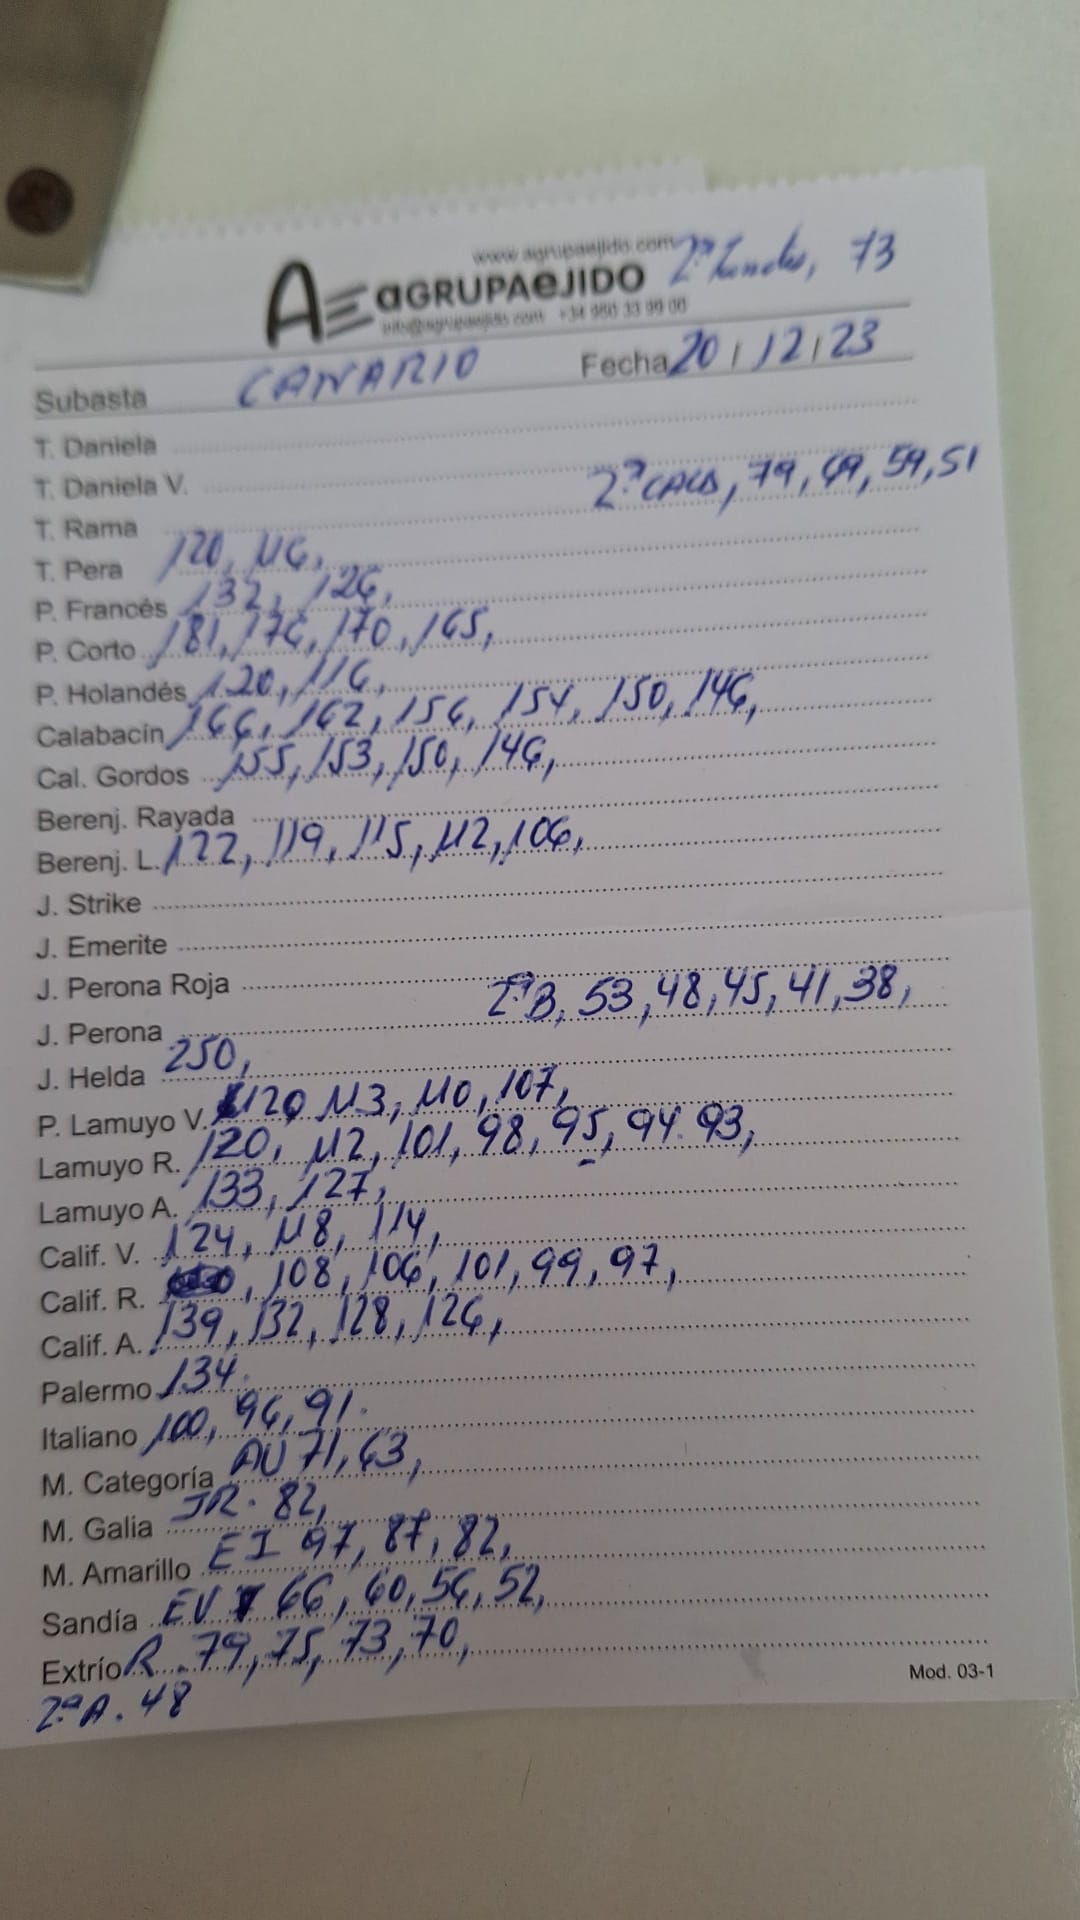 www.agrupaejido.com
AE aGRUPAeJIDO 2ª 73
info@agrupaejido.com +34 950 33 99 00
Subasta CANARIO Fecha 20/12/23
T. Daniela
T. Daniela V.
2ª CALB, 79, 69, 59, 51
T. Rama
T. Pera 120, 116,
P. Francés 132, 126,
P. Corto 181, 176, 170, 165,
P. Holandés 120, 116,
Calabacín 166, 162, 156, 154, 150, 146,
Cal. Gordos 155, 153, 150, 146,
Berenj. Rayada
Berenj. L. 122, 119, 115, 112, 106,
J. Strike
J. Emerite
J. Perona Roja
J. Perona 2ª B, 53, 48, 45, 41, 38,
J. Helda 250,
P. Lamuyo V. 120, 113, 110, 107,
Lamuyo R. 120, 112, 101, 98, 95, 94. 93,
Lamuyo A. 133, 127,
Calif. V. 124, 118, 114,
Calif. R. , 108, 106, 101, 99, 97,
Calif. A. 139, 132, 128, 126,
Palermo 134.
Italiano 100, 96, 91.
M. Categoría AV 71, 63,
M. Galia JR. 82,
M. Amarillo EI 97, 87, 82,
Sandía EV 66, 60, 56, 52,
Extrío R. 79, 75, 73, 70,
2ª A. 48
Mod. 03-1